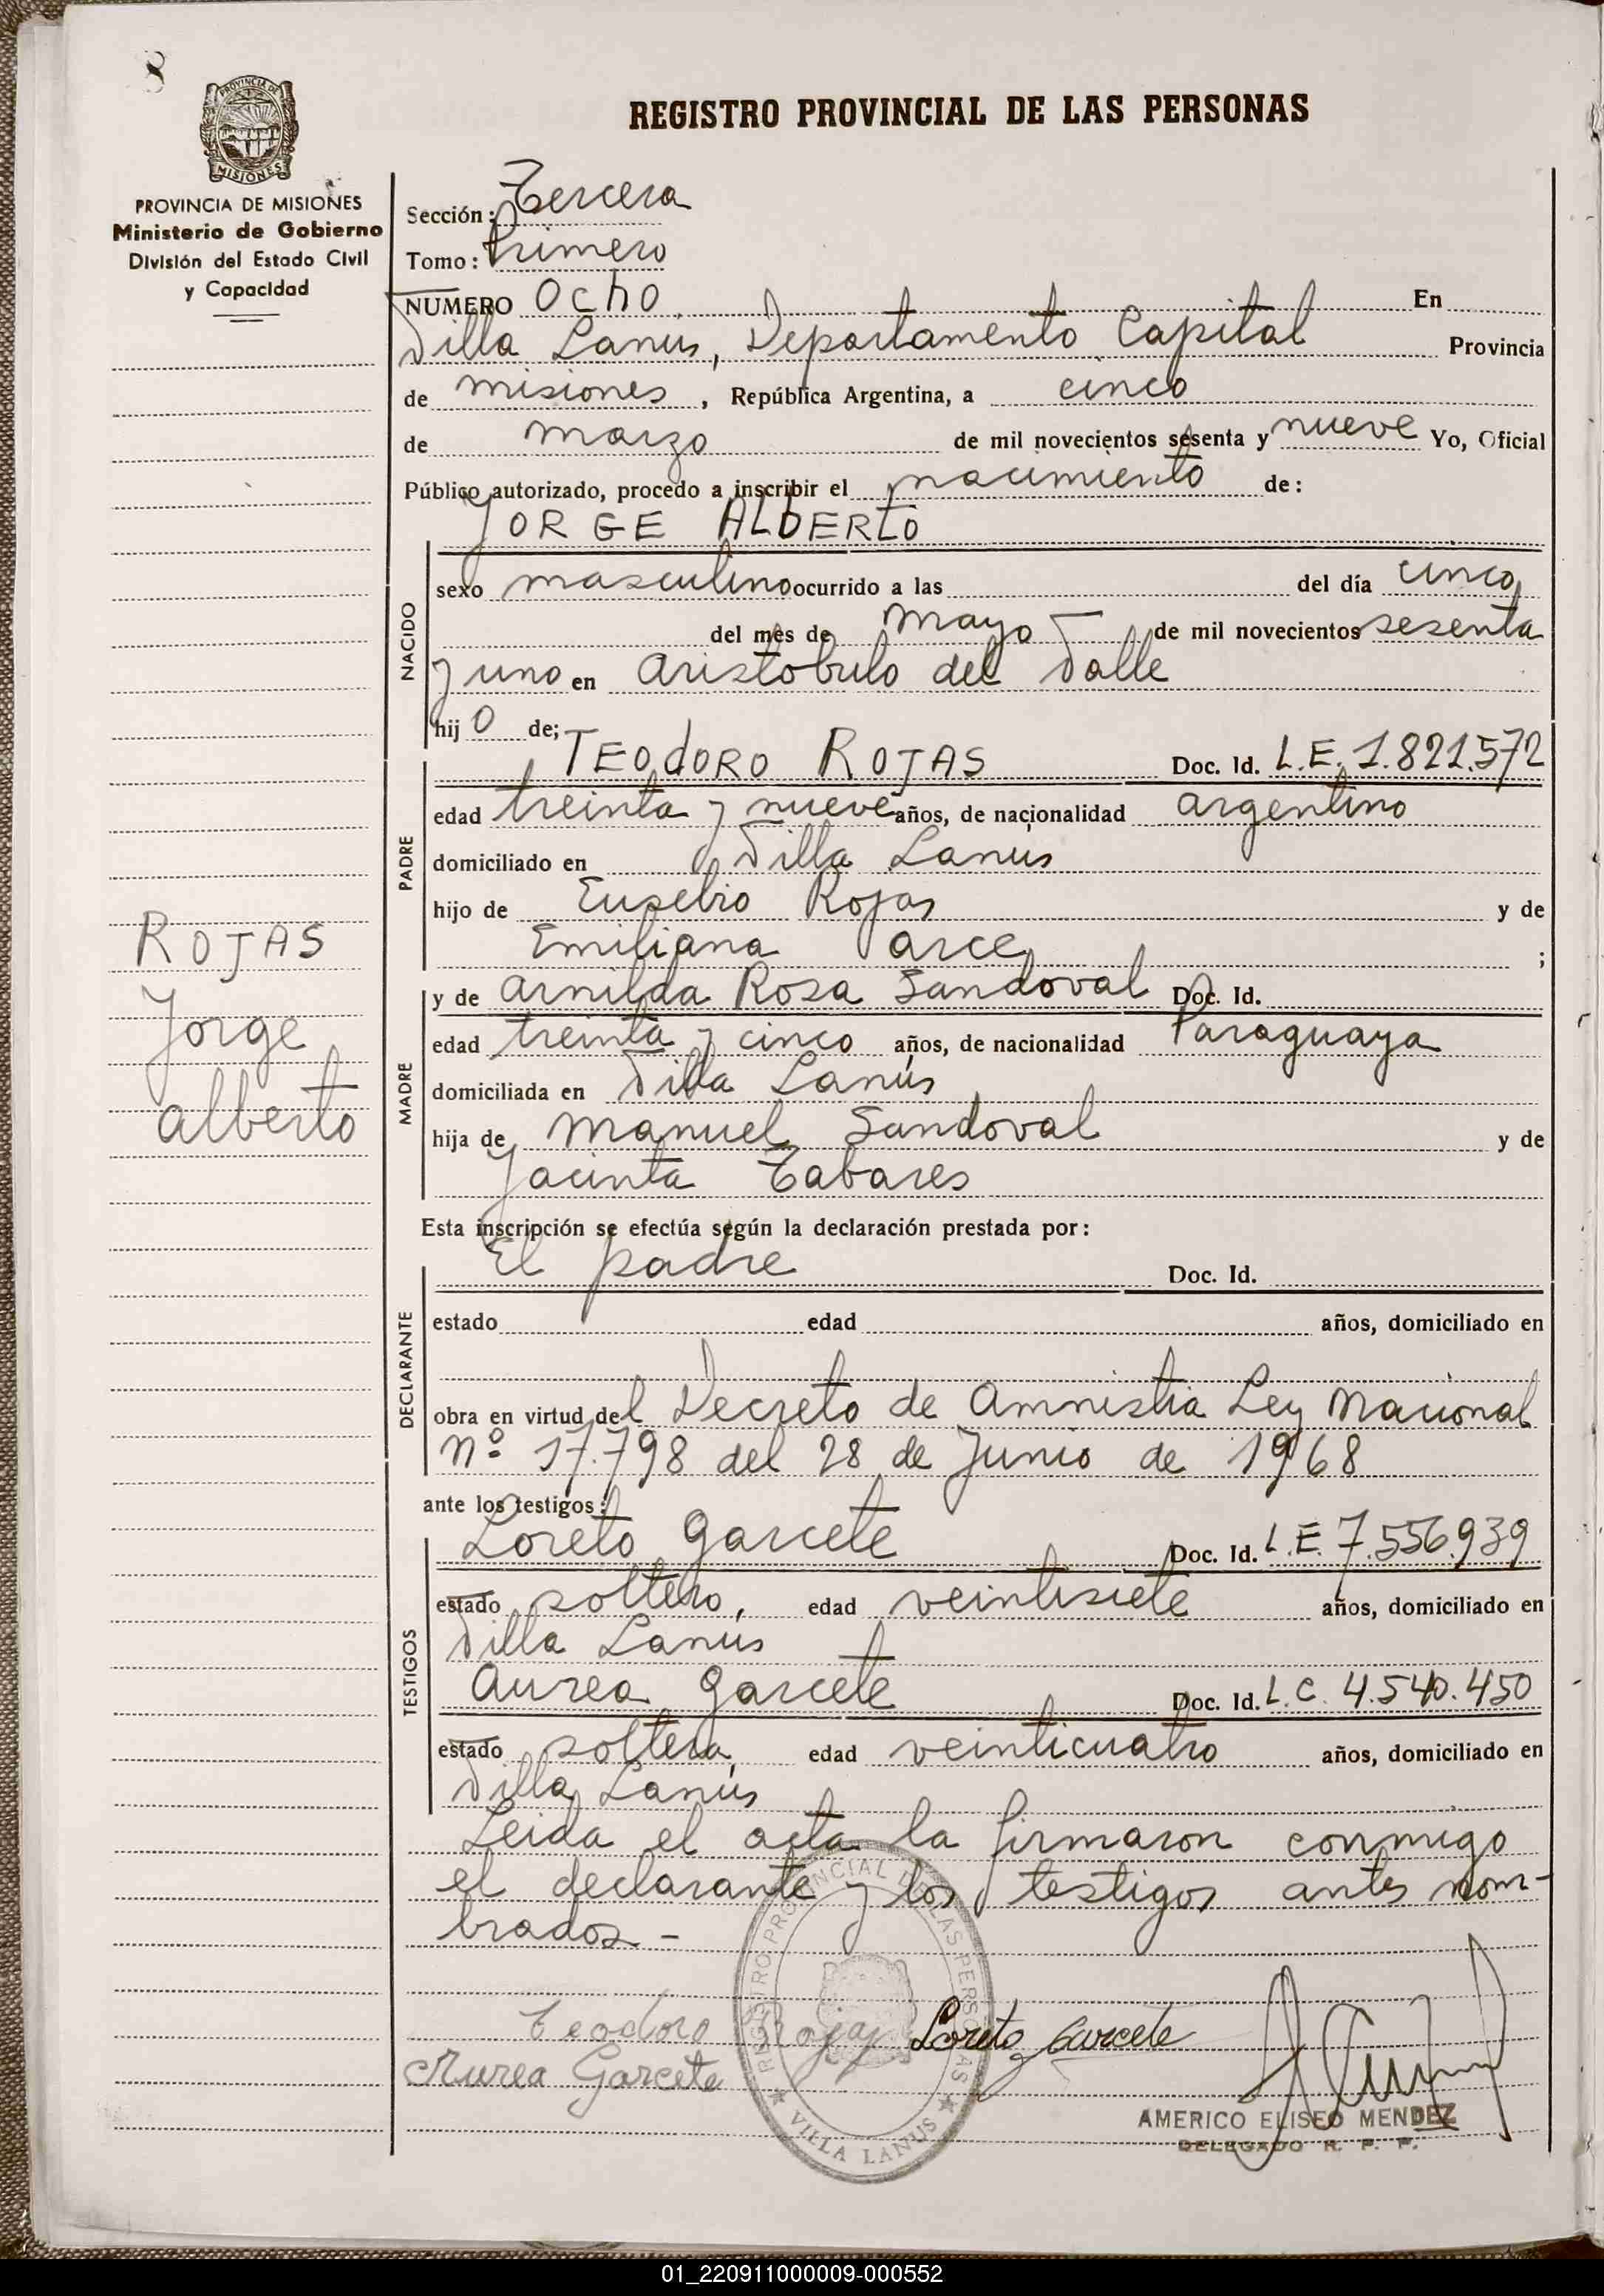 8
PROVINCIA DE
MISIONES
PROVINCIA DE MISIONES
Ministerio de Gobierno
División del Estado Civil
y Capacidad
REGISTRO PROVINCIAL DE LAS PERSONAS
Sección: Tercera
Tomo: Primero
NUMERO Ocho En
Villa Lanus, Departamento Capital Provincia
de misiones, República Argentina, a cinco
de marzo de mil novecientos sesenta y nueve Yo, Oficial
Público autorizado, procedo a inscribir el nacimiento de:
JORGE ALBERTO
NACIDO
sexo masculino ocurrido a las del día cinco
del mes de mayo — de mil novecientos sesenta
y uno en Aristobulo del Valle
hijo de;
TEODORO ROJAS Doc. Id. L.E. 1.821.572
PADRE
edad treinta y nueve años, de nacionalidad argentino
domiciliado en Villa Lanus
hijo de Eusebio Rojas y de
Emiliana Arce ;
ROJAS
Jorge
Alberto
MADRE
y de Arnilda Rosa Sandoval Doc. Id.
edad treinta y cinco años, de nacionalidad Paraguaya
domiciliada en Villa Lanús
hija de Manuel Sandoval y de
Jacinta Tabares
Esta inscripción se efectúa según la declaración prestada por:
El padre Doc. Id.
DECLARANTE
estado edad años, domiciliado en
obra en virtud del Decreto de Amnistia Ley Nacional
Nº 17.798 del 28 de Junio de 1968
ante los testigos:
Loreto Garcete Doc. Id. L.E. 7.556.939
TESTIGOS
estado soltero, edad veintisiete años, domiciliado en
Villa Lanus
Aurea Garcete Doc. Id. L.C. 4.540.450
estado soltera, edad veinticuatro años, domiciliado en
Villa Lanús
Leida el acta la firmaron conmigo
el declarante y los testigos antes nom-
brados -
REGISTRO PROVINCIAL DE LAS PERSONAS
VILLA LANUS
Teodoro Rojas Loreto Garcete
Aurea Garcete
AMERICO ELISEO MENDEZ
DELEGADO R. P. P.
01_220911000009-000552